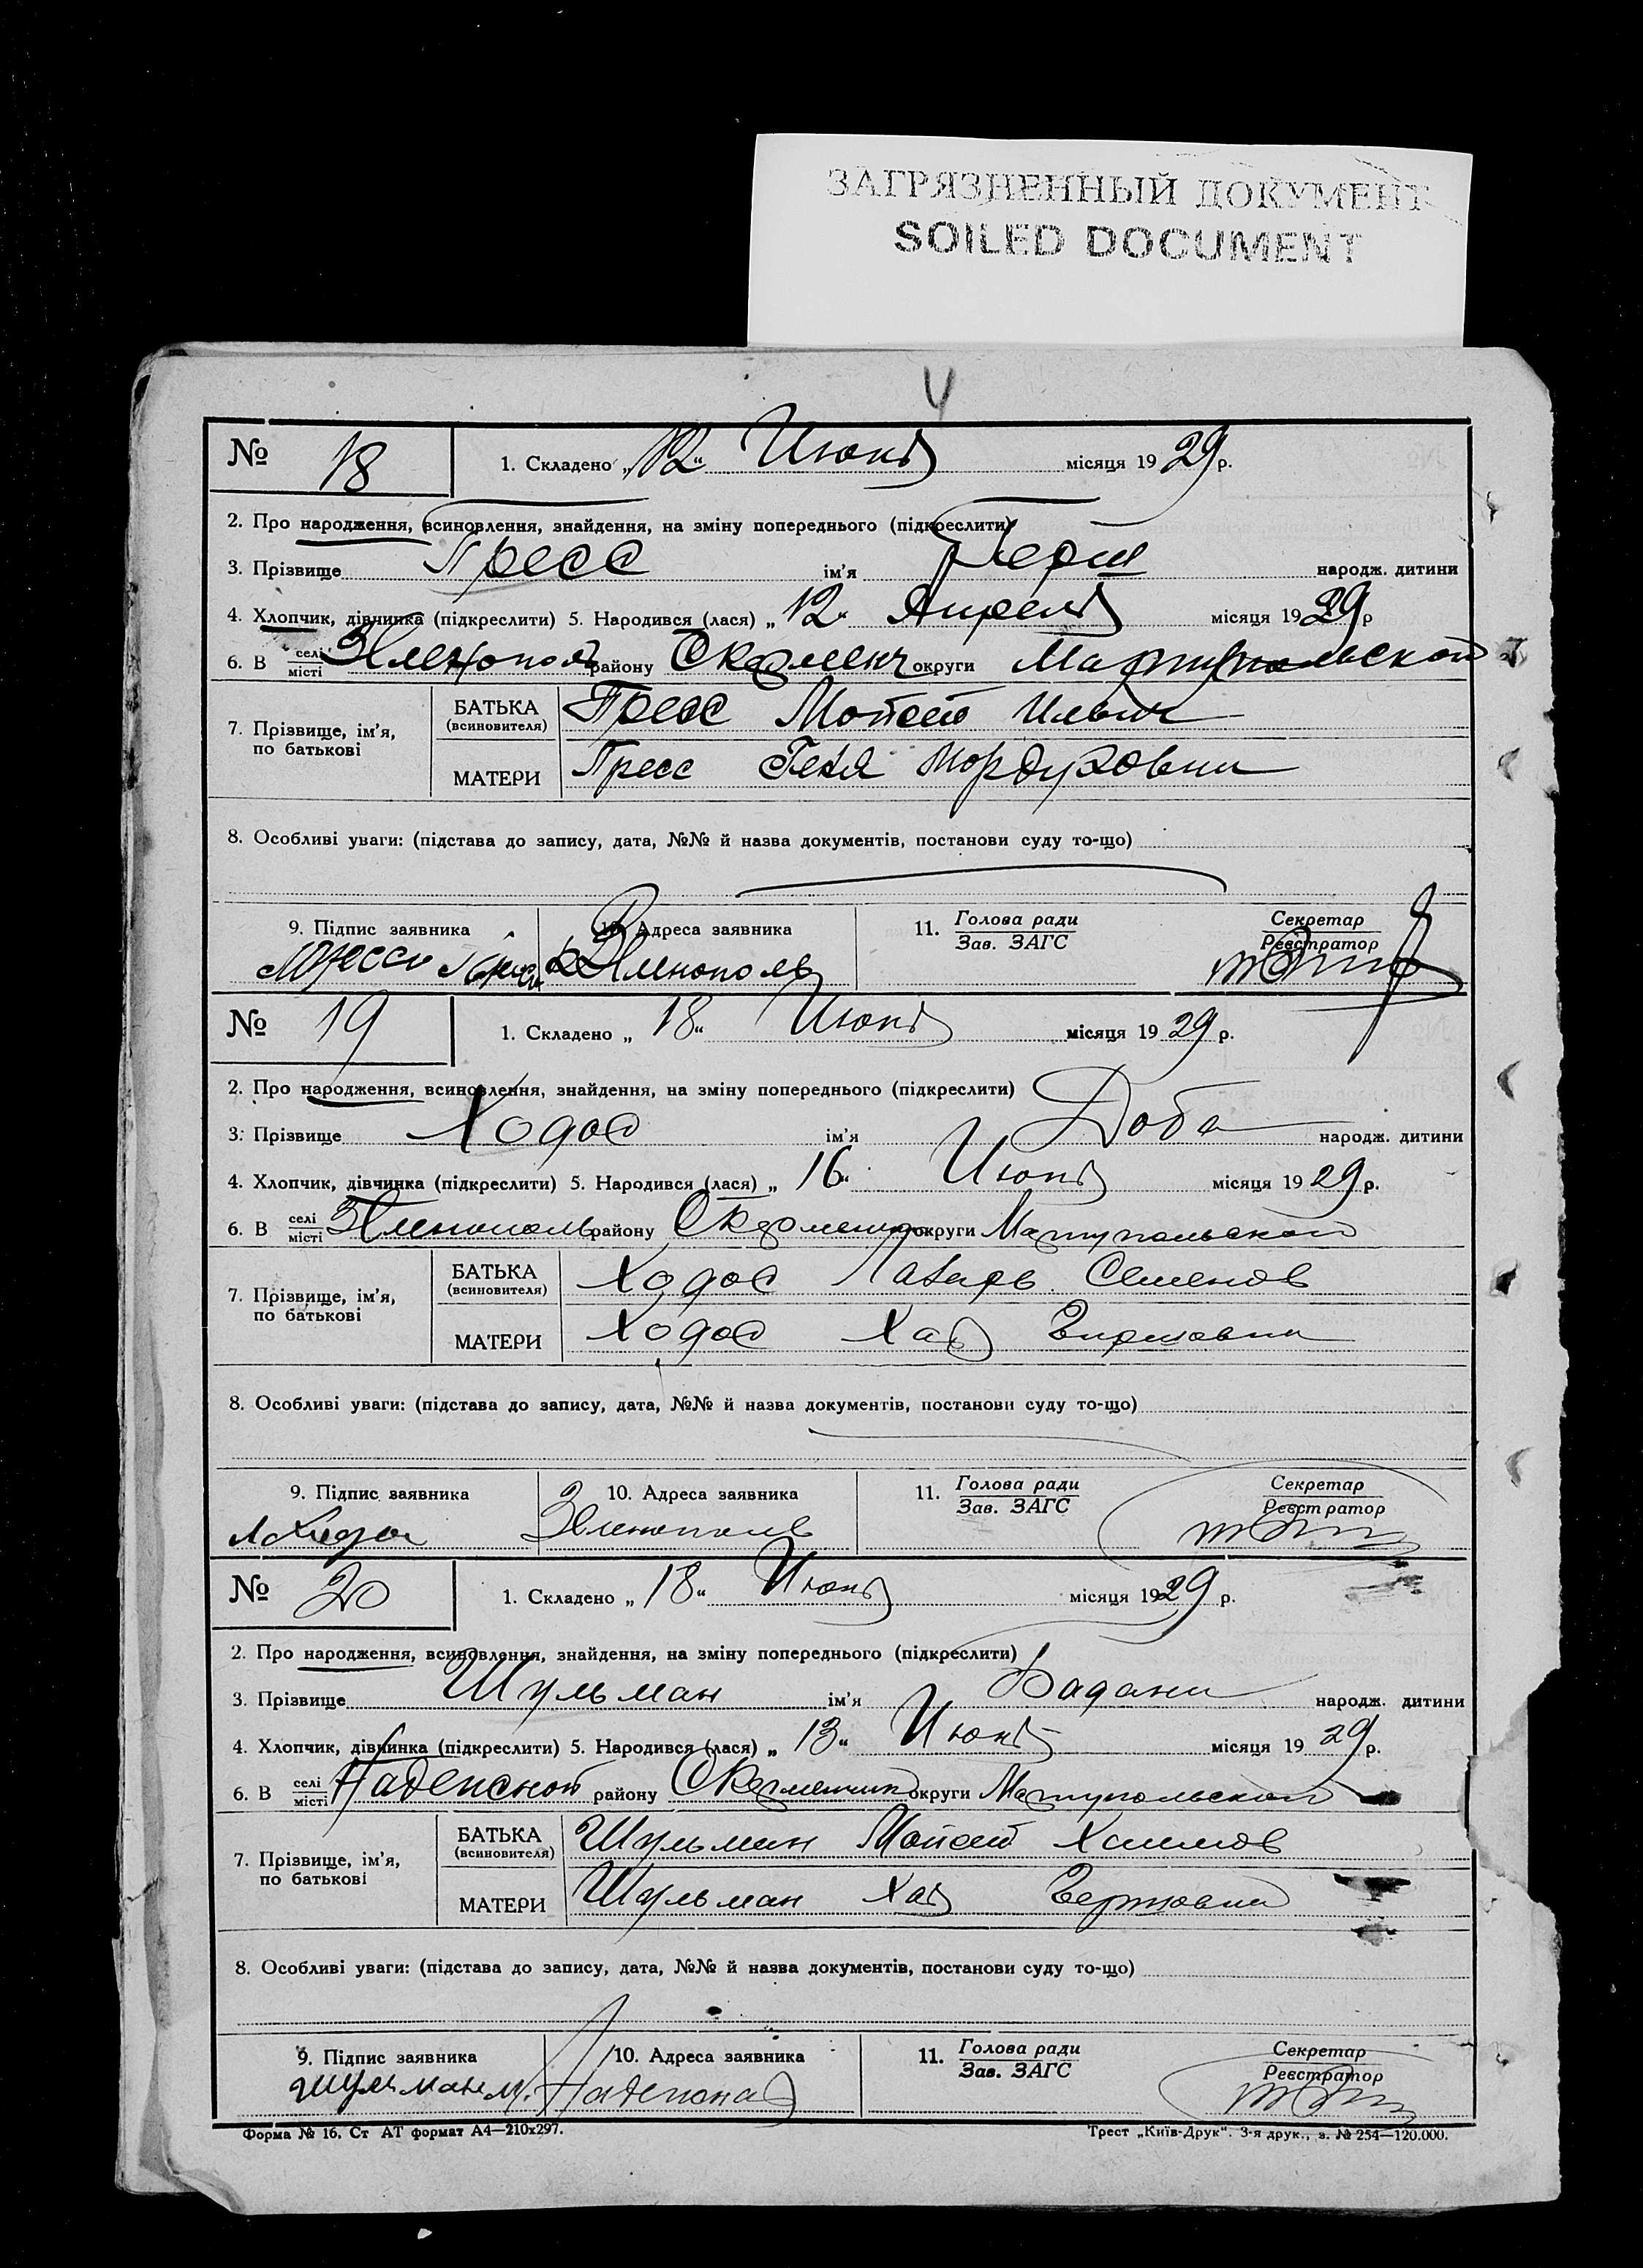 ЗАГРЯЗНЕННЫЙ ДОКУМЕНТ
SOILED DOCUMENT
4
№ 18 1. Складено „12“ Июня місяця 1929 р.
2. Про народження, всиновлення, знайдення, на зміну попереднього (підкреслити)
3. Прізвище Пресс ім'я Герш народж. дитини
4. Хлопчик, дівчинка (підкреслити) 5. Народився (лася) „12“ Апреля місяця 1929 р
6. В селі/місті Зеленополь району округи Мариупольской
7. Прізвище, ім'я, по батькові
БАТЬКА (всиновителя) Пресс Мойсей Ильич
МАТЕРИ Пресс Геня Мордуховна
8. Особливі уваги: (підстава до запису, дата, №№ й назва документів, постанови суду то-що)
9. Підпис заявника 10. Адреса заявника 11. Голова ради Секретар
Зав. ЗАГС Реєстратор
Зеленополь
№ 19 1. Складено „18“ Июня місяця 1929 р.
2. Про народження, всиновлення, знайдення, на зміну попереднього (підкреслити)
3. Прізвище Ходос ім'я Доба народж. дитини
4. Хлопчик, дівчинка (підкреслити) 5. Народився (лася) „16“ Июня місяця 1929 р.
6. В селі/місті Зеленополь району округи Мариупольской
7. Прізвище, ім'я, по батькові
БАТЬКА (всиновителя) Ходос Лазарь Семенов
МАТЕРИ Ходос Хая Гиршовна
8. Особливі уваги: (підстава до запису, дата, №№ й назва документів, постанови суду то-що)
9. Підпис заявника 10. Адреса заявника 11. Голова ради Секретар
Зав. ЗАГС Реєстратор
Зеленополь
№ 20 1. Складено „18“ Июня місяця 1929 р.
2. Про народження, всиновлення, знайдення, на зміну попереднього (підкреслити)
3. Прізвище Шульман ім'я народж. дитини
4. Хлопчик, дівчинка (підкреслити) 5. Народився (лася) „13“ Июня місяця 1929 р.
6. В селі/місті району округи Мариупольской
7. Прізвище, ім'я, по батькові
БАТЬКА (всиновителя) Шульман Мойсей Хаимов
МАТЕРИ Шульман Хая
8. Особливі уваги: (підстава до запису, дата, №№ й назва документів, постанови суду то-що)
9. Підпис заявника 10. Адреса заявника 11. Голова ради Секретар
Зав. ЗАГС Реєстратор
Шульман М.
Форма № 16. Ст АТ формат А4—210х297. Трест „Київ-Друк“. 3-я друк., з. № 254—120.000.